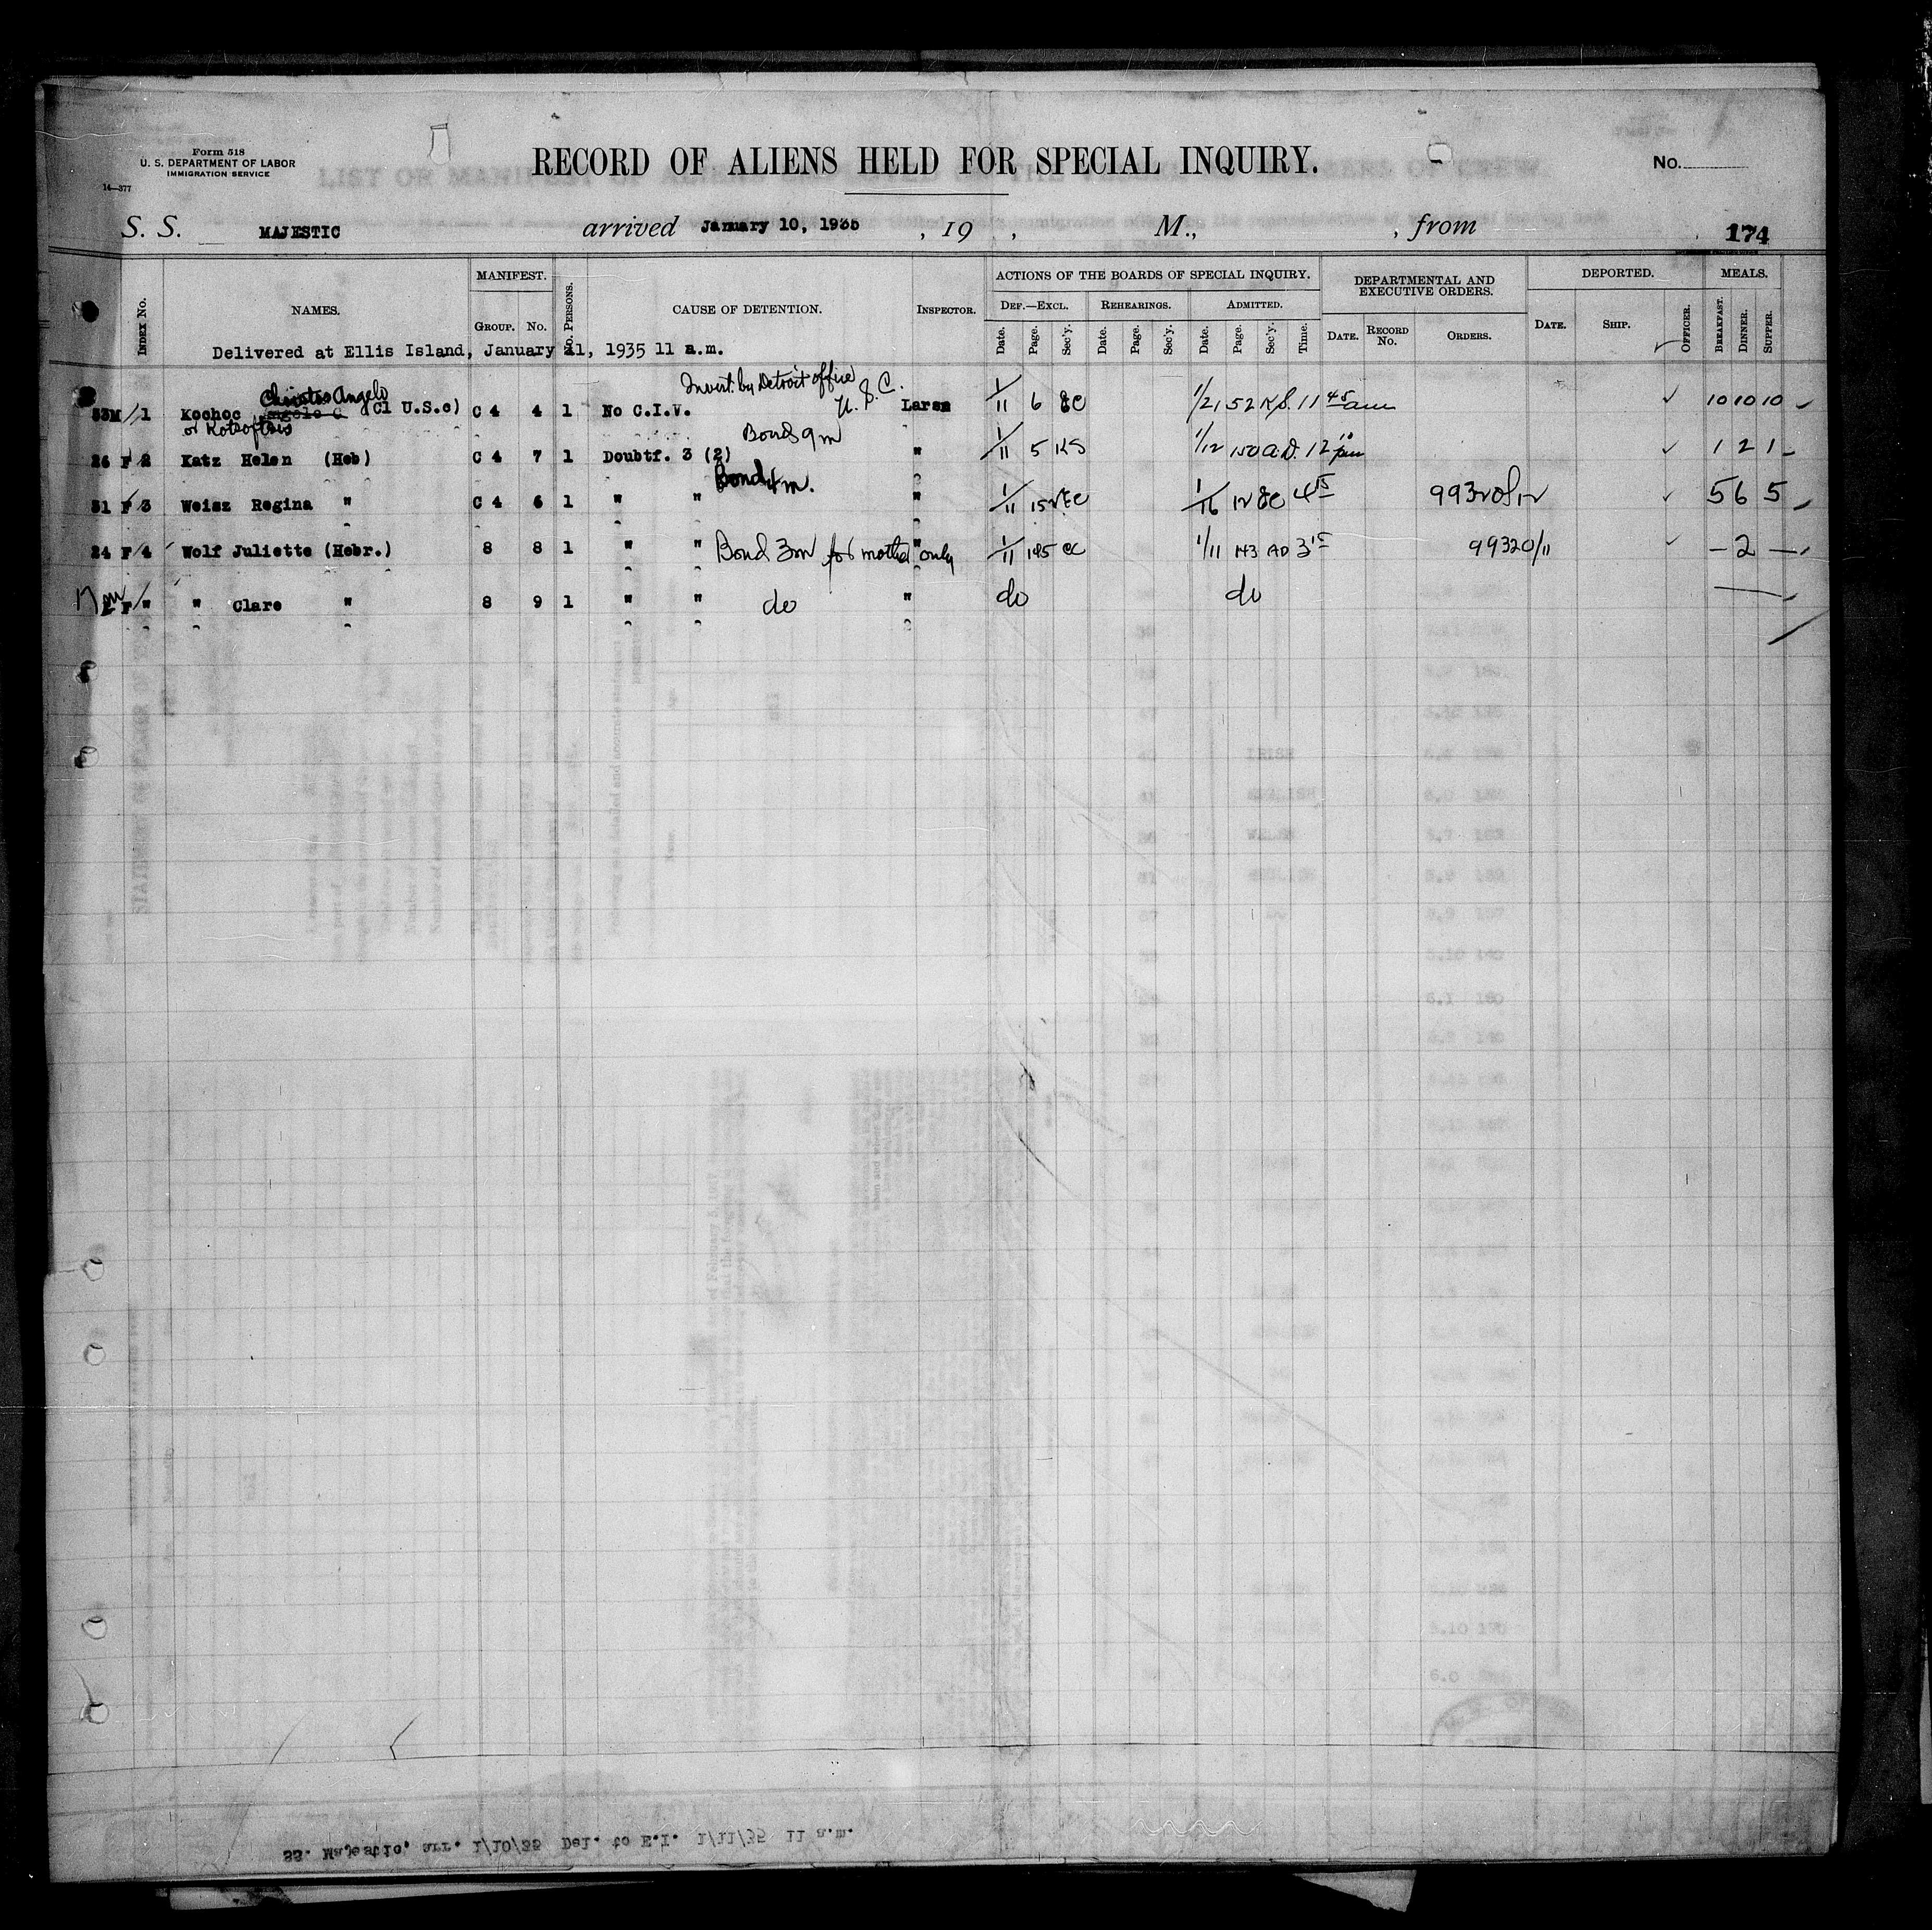 Form 518
U. S. DEPARTMENT OF LABOR
IMMIGRATION SERVICE
14—377
RECORD OF ALIENS HELD FOR SPECIAL INQUIRY.
No.
S. S. MAJESTIC arrived January 10, 1935 , 19 , M., , from 174
INDEX No. NAMES. MANIFEST. GROUP. No. No. PERSONS. CAUSE OF DETENTION. INSPECTOR. ACTIONS OF THE BOARDS OF SPECIAL INQUIRY. DEF.—EXCL. Date. Page. Sec'y. REHEARINGS. Date. Page. Sec'y. ADMITTED. Date. Page. Sec'y. Time. DEPARTMENTAL AND EXECUTIVE ORDERS. DATE. RECORD No. ORDERS. DEPORTED. DATE. SHIP. OFFICER. MEALS. BREAKFAST. DINNER. SUPPER.
Delivered at Ellis Island, January 11, 1935 11 a.m.
Christos Angelo Invest. by Detroit office
33M 1 Kochoc (Cl U.S.c) C 4 4 1 No C.I.V. U.S.C. Larsn 1/11 6 1/21 52 KS. 11 45 am 10 10 10
or Kotsoftsis Bond 9m
26 F 2 Katz Helen (Heb) C 4 7 1 Doubtf. 3 (2) " 1/11 5 KS 1/12 150 A.D. 12 10 pm 1 2 1
Bond 4m.
31 F 3 Weisz Regina " C 4 6 1 " " " 1/11 1/16 4 15 5 6 5
24 F 4 Wolf Juliette (Hebr.) 8 8 1 " " Bond 3m for mother only " 1/11 1/11 143 AD 3 15 99320/11 – 2 –
F " " Clare " 8 9 1 " " do " do do
SS. Majestic, arr. 1/10/35 Del. to E.I. 1/11/35 11 a.m.